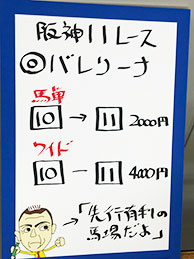 阪神11レース
◎バレリーナ
馬単
10 → 11 2000円
ワイド
10 − 11 4000円
→「先行有利の
馬場だよ」